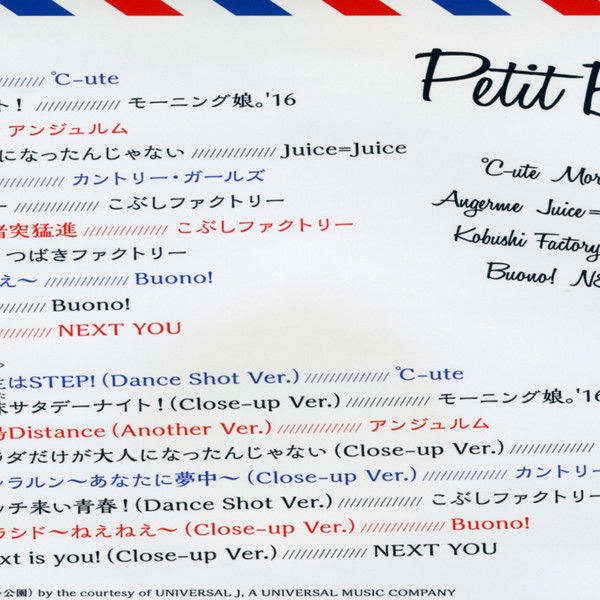 ℃-ute
ト！ モーニング娘。'16
アンジュルム
になったんじゃない Juice=Juice
カントリー・ガールズ
ー こぶしファクトリー
突猛進 こぶしファクトリー
つばきファクトリー
え〜 Buono!
Buono!
NEXT YOU
Petit
℃-ute Mor
Angerme Juice=
Kobushi Factory
Buono! NE
はSTEP!(Dance Shot Ver.) ℃-ute
サタデーナイト！(Close-up Ver.) モーニング娘。'16
Distance (Another Ver.) アンジュルム
ラダだけが大人になったんじゃない (Close-up Ver.)
ラルン〜あなたに夢中〜 (Close-up Ver.) カントリー
ッチ来い青春！(Dance Shot Ver.) こぶしファクトリー
ラシド〜ねえねえ〜 (Close-up Ver.) Buono!
xt is you! (Close-up Ver.) NEXT YOU
公園) by the courtesy of UNIVERSAL J, A UNIVERSAL MUSIC COMPANY